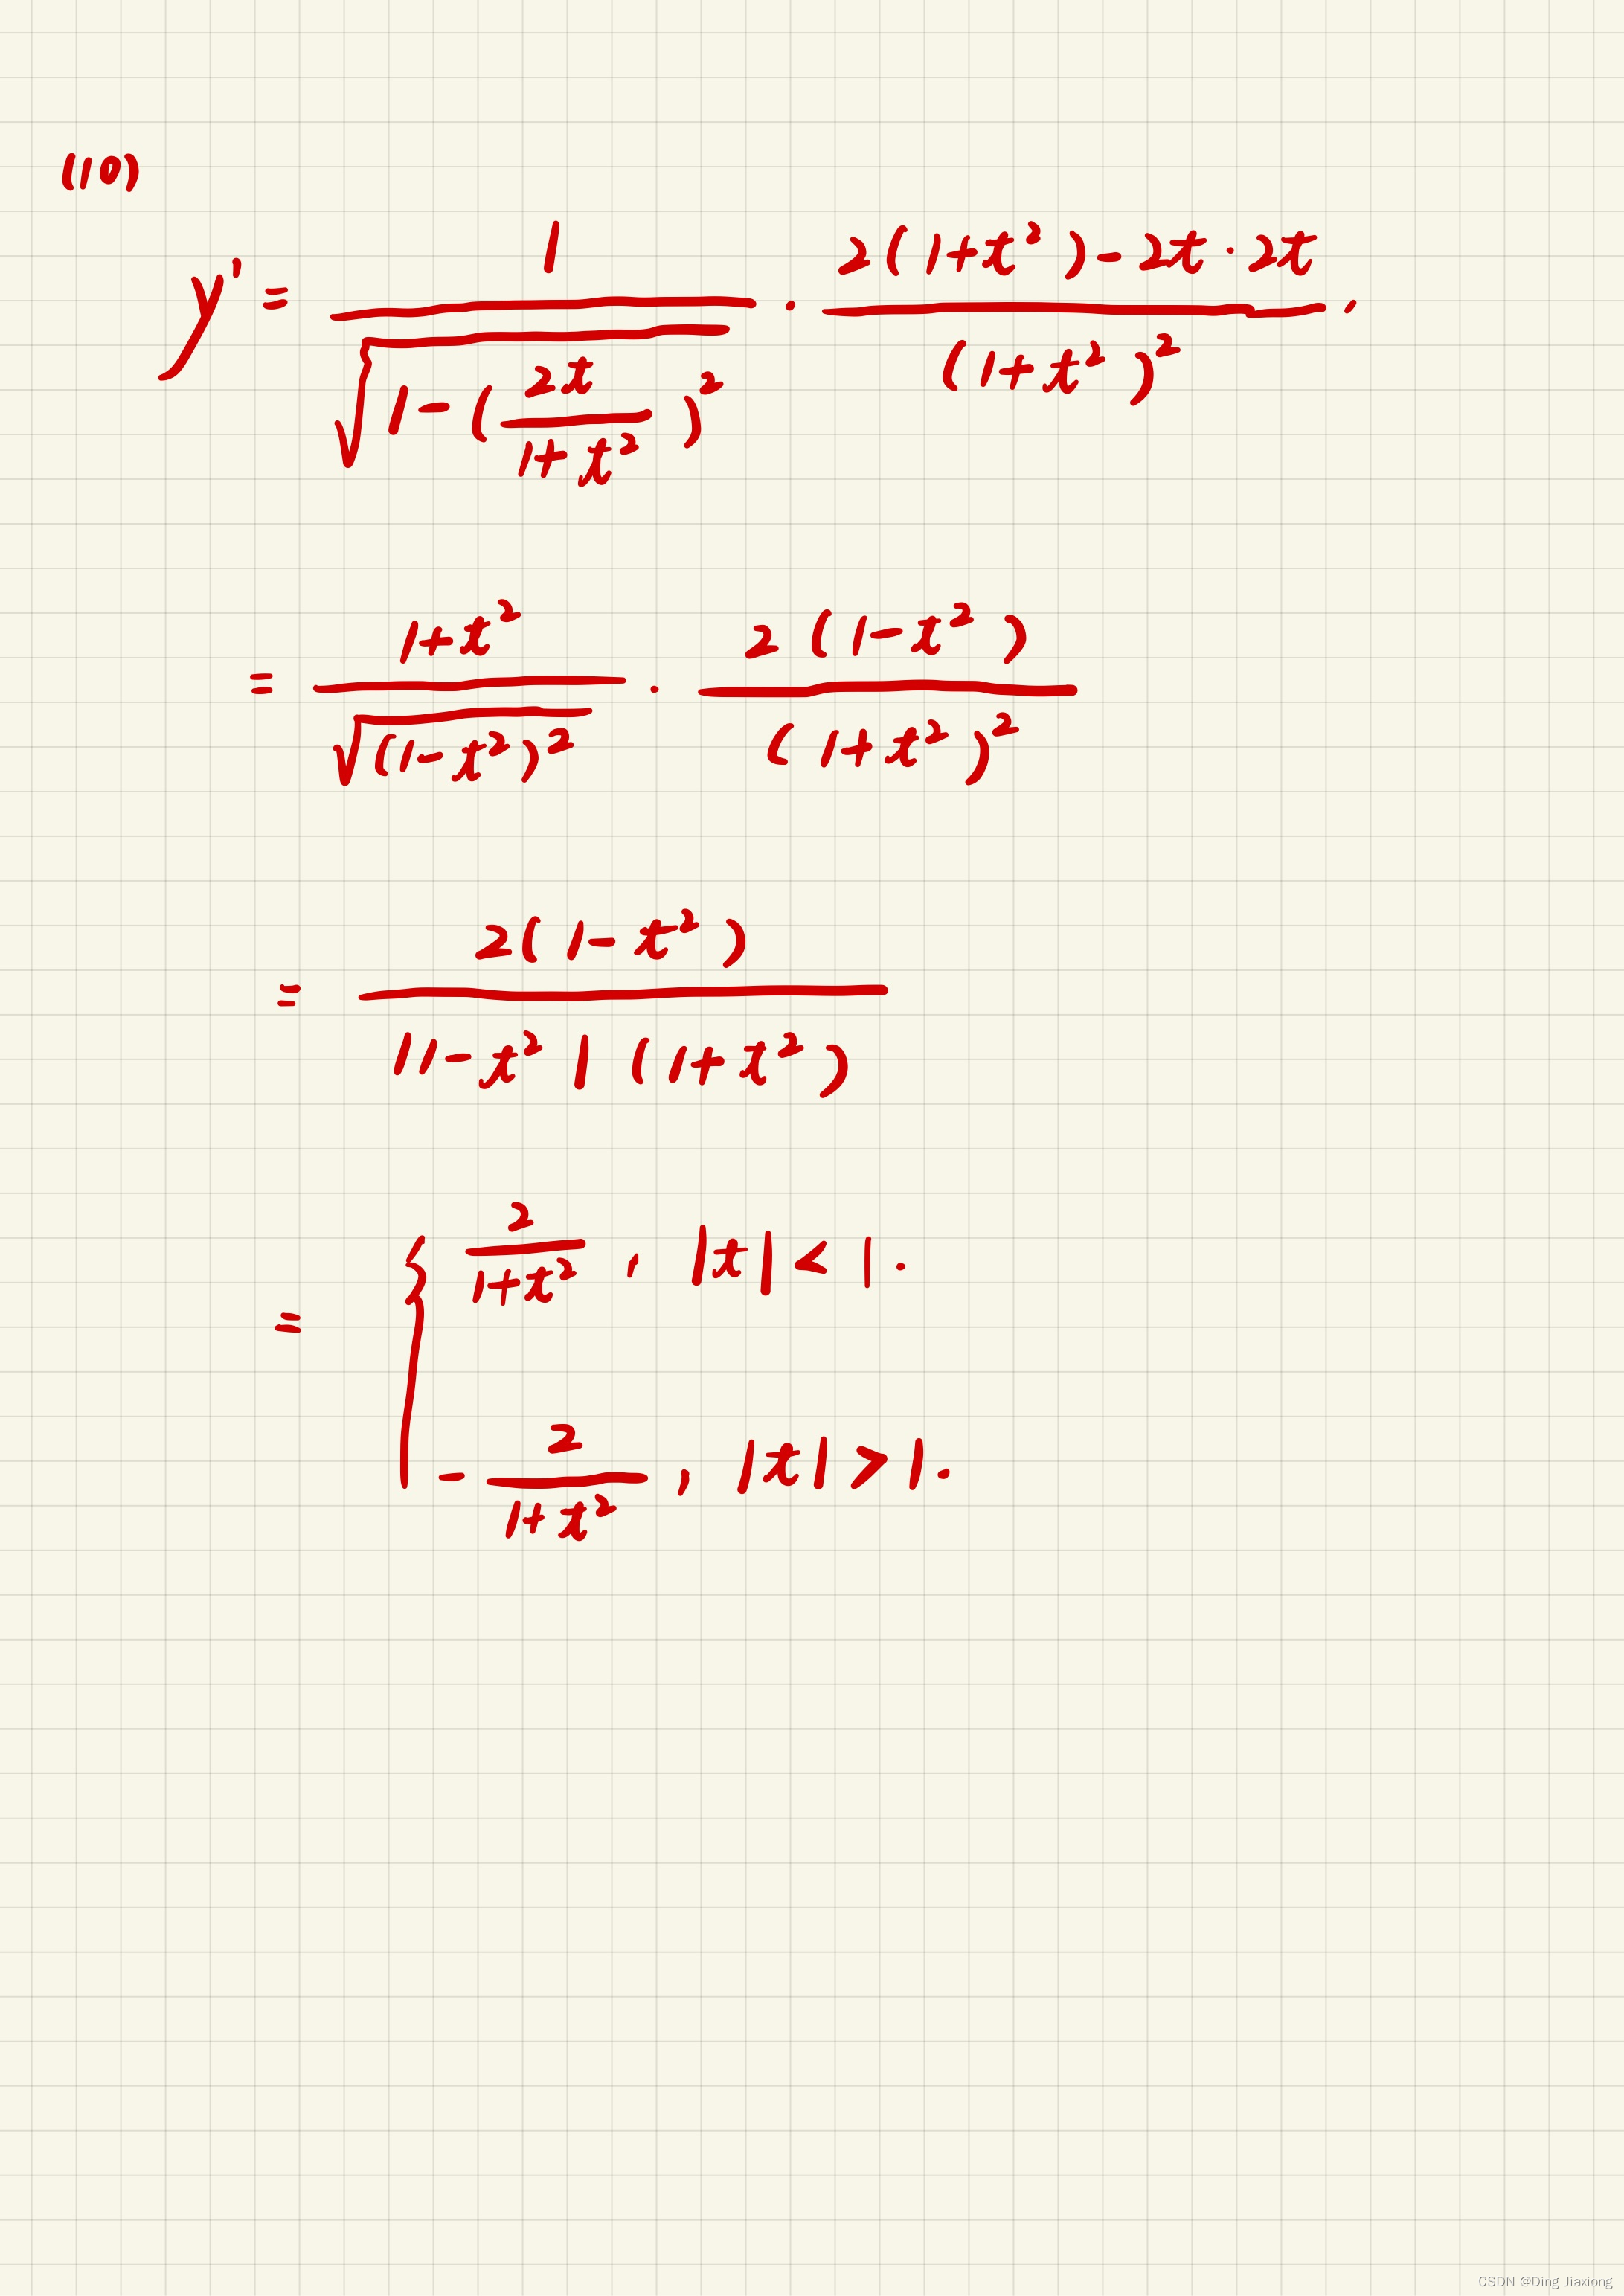 (10)
y' = \frac{1}{\sqrt{1-(\frac{2t}{1+t^2})^2}} · \frac{2(1+t^2)-2t·2t}{(1+t^2)^2},
= \frac{1+t^2}{\sqrt{(1-t^2)^2}} · \frac{2(1-t^2)}{(1+t^2)^2}
= \frac{2(1-t^2)}{|1-t^2|(1+t^2)}
= { \frac{2}{1+t^2}, |t|<1.
-\frac{2}{1+t^2}, |t|>1.
CSDN @Ding Jiaxiong